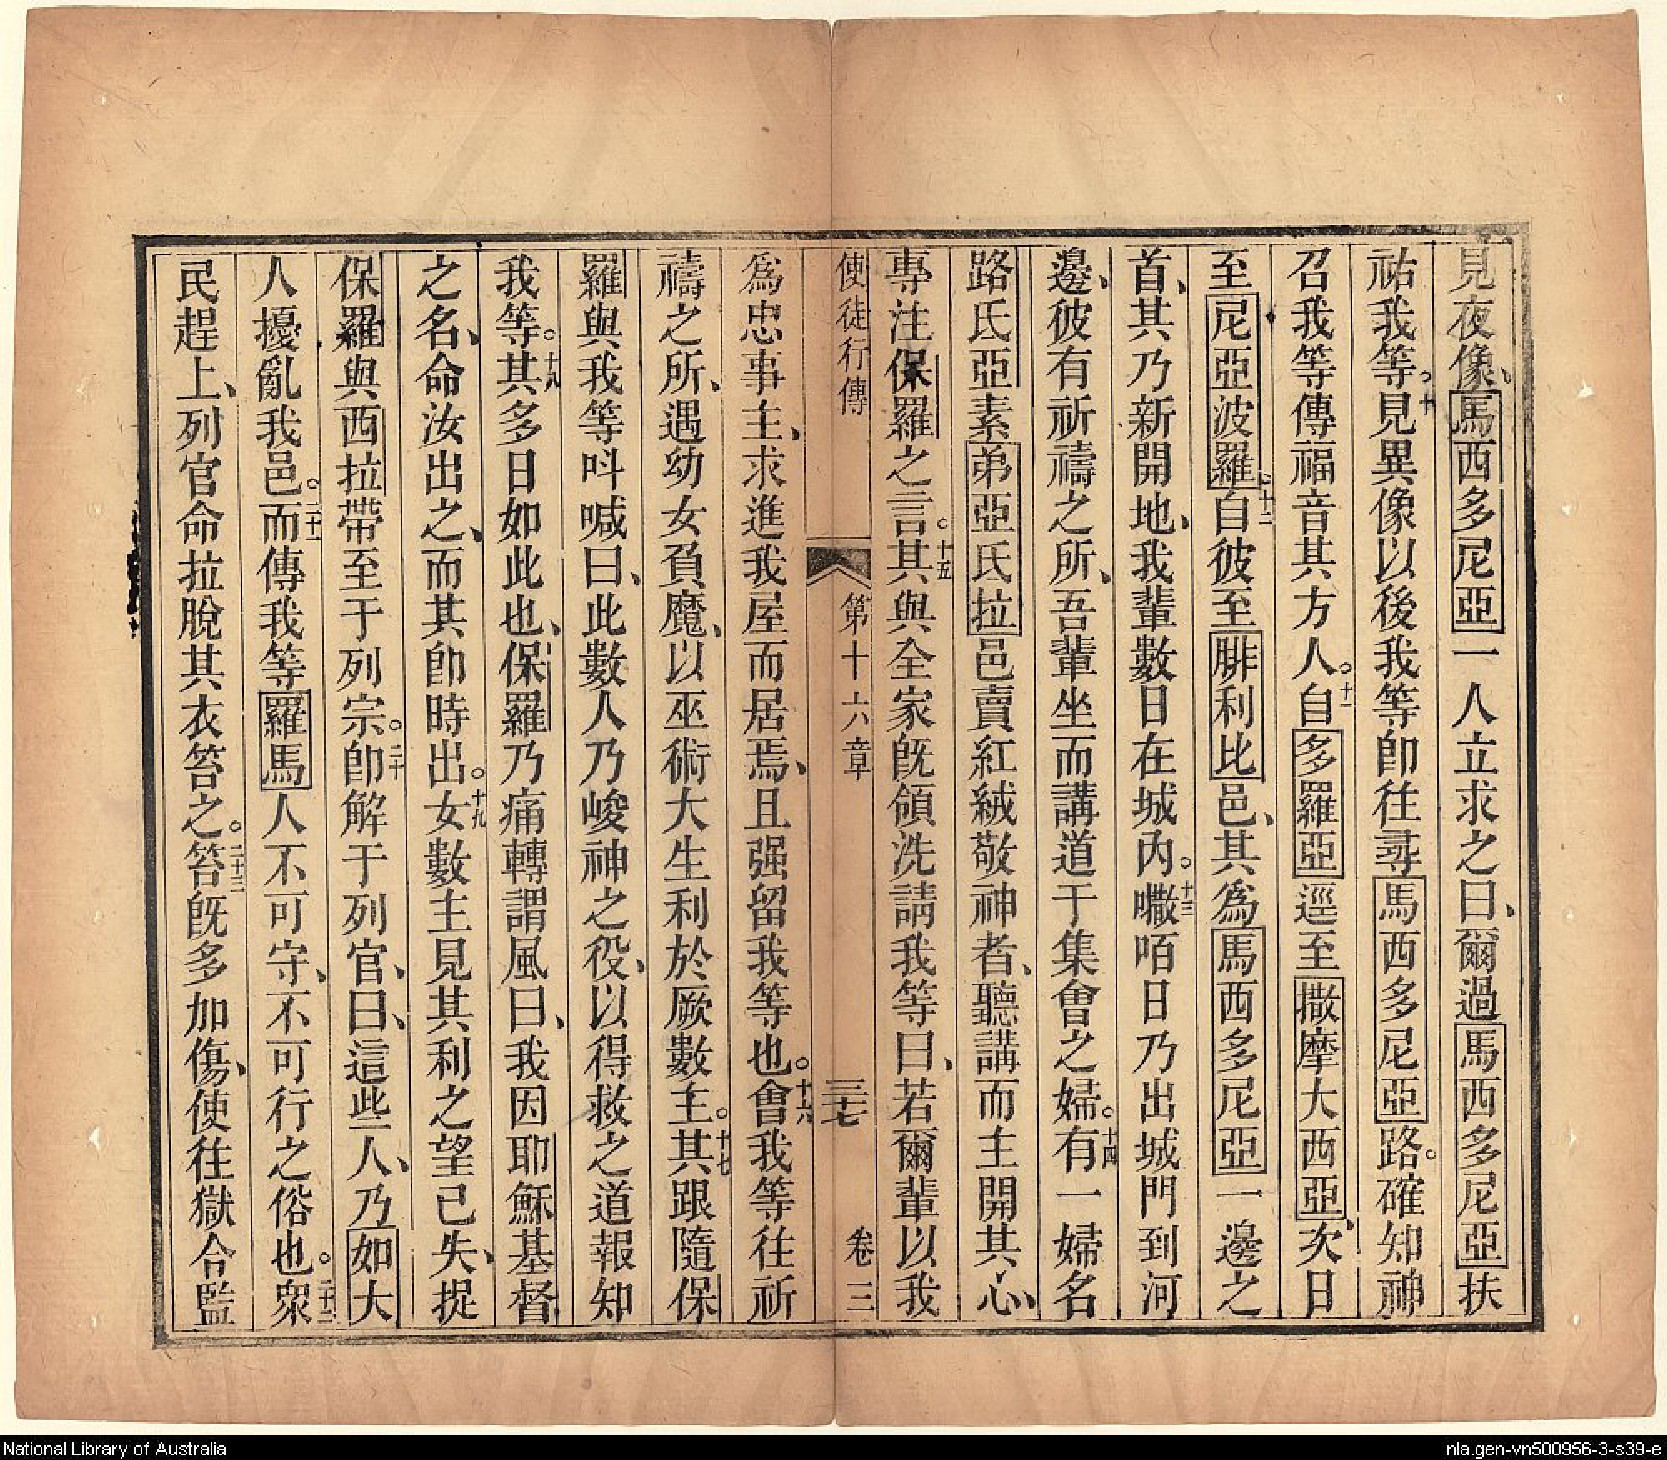 見夜像、馬西多尼亞一人立求之曰、爾過馬西多尼亞扶
祐我等。十見異像以後我等卽往尋馬西多尼亞路。確知神
召我等傳福音其方人。十一自多羅亞逕至撒摩大西亞、次日
至尼亞波羅。十二自彼至腓利比邑、其爲馬西多尼亞一邊之
首、其乃新開地、我輩數日在城內。十三嚫咟日乃出城門到河
邊、彼有祈禱之所、吾輩坐而講道于集會之婦。十四有一婦名
路氏亞素弟亞氏拉邑賣紅絨敬神者、聽講而主開其心、
專注保羅之言。十五其與全家旣領洗請我等曰、若爾輩以我
使徒行傳 第十六章 三十七 卷三
爲忠事主、求進我屋而居焉、且强留我等也。十六會我等往祈
禱之所、遇幼女負魔、以巫術大生利於厥數主。十七其跟隨保
羅與我等呌喊曰、此數人乃峻神之役、以得救之道報知
我等。十八其多日如此也、保羅乃痛轉謂風曰、我因耶穌基督
之名、命汝出之、而其卽時出。十九女數主見其利之望已失、捉
保羅與西拉帶至于列宗。二十卽解于列官、曰、這些人、乃如大
人擾亂我邑。二十一而傳我等羅馬人不可守、不可行之俗也。二十二衆
民趕上、列官命拉脫其衣笞之。二十三笞旣多加傷、使往獄令監
National Library of Australia
nla.gen-vn500956-3-s39-e